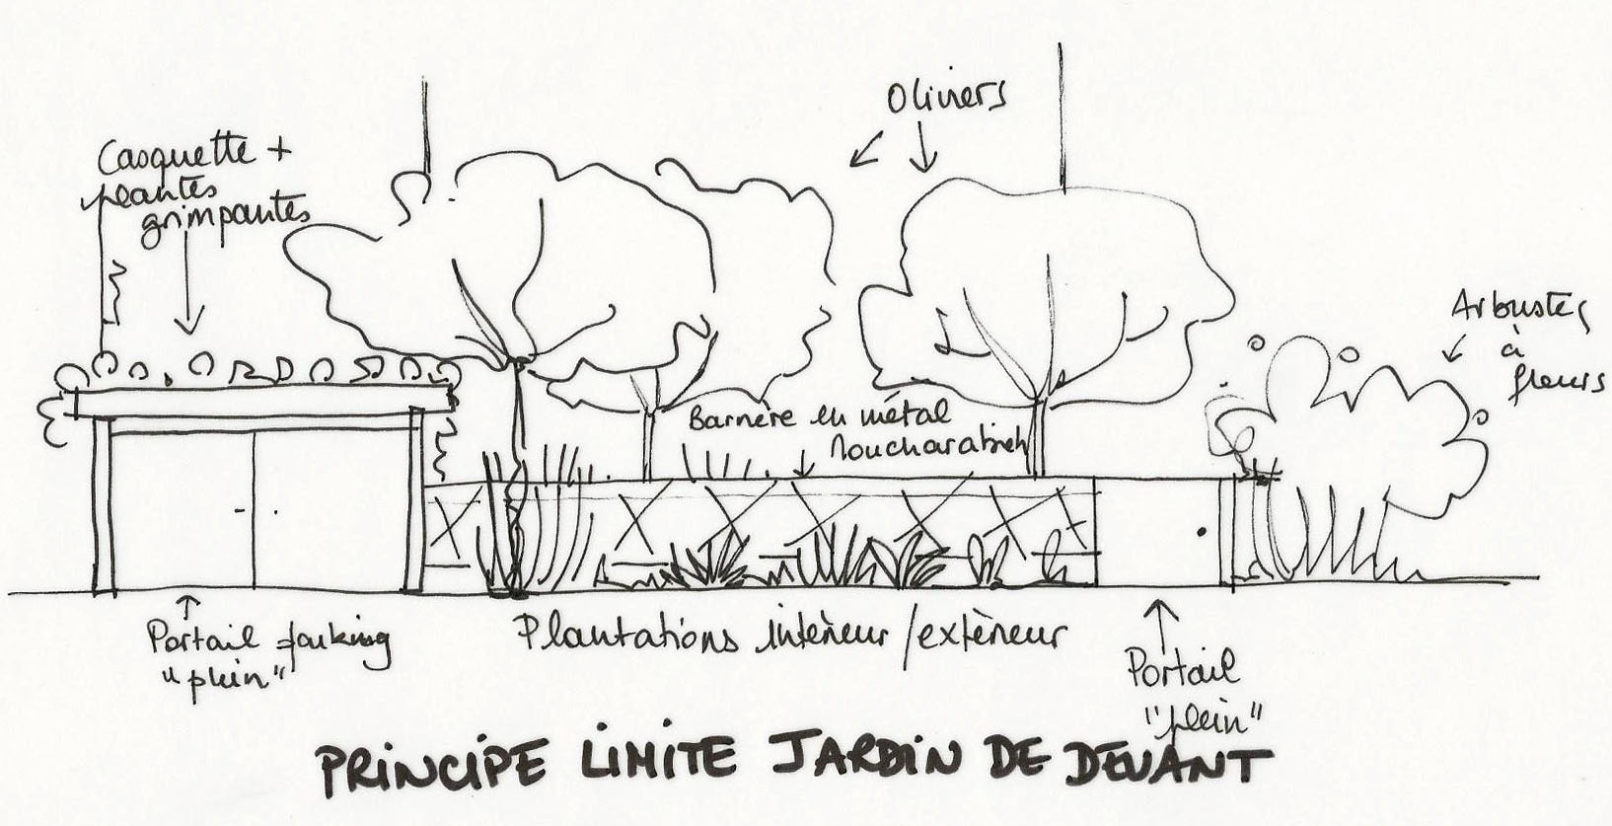 Casquette +
plantes
grimpantes
Oliviers
Arbustes
à
fleurs
Barrière en métal
Moucharabieh
Portail parking
"plein"
Plantations intérieur/extérieur
Portail
"plein"
PRINCIPE LIMITE JARDIN DE DEVANT